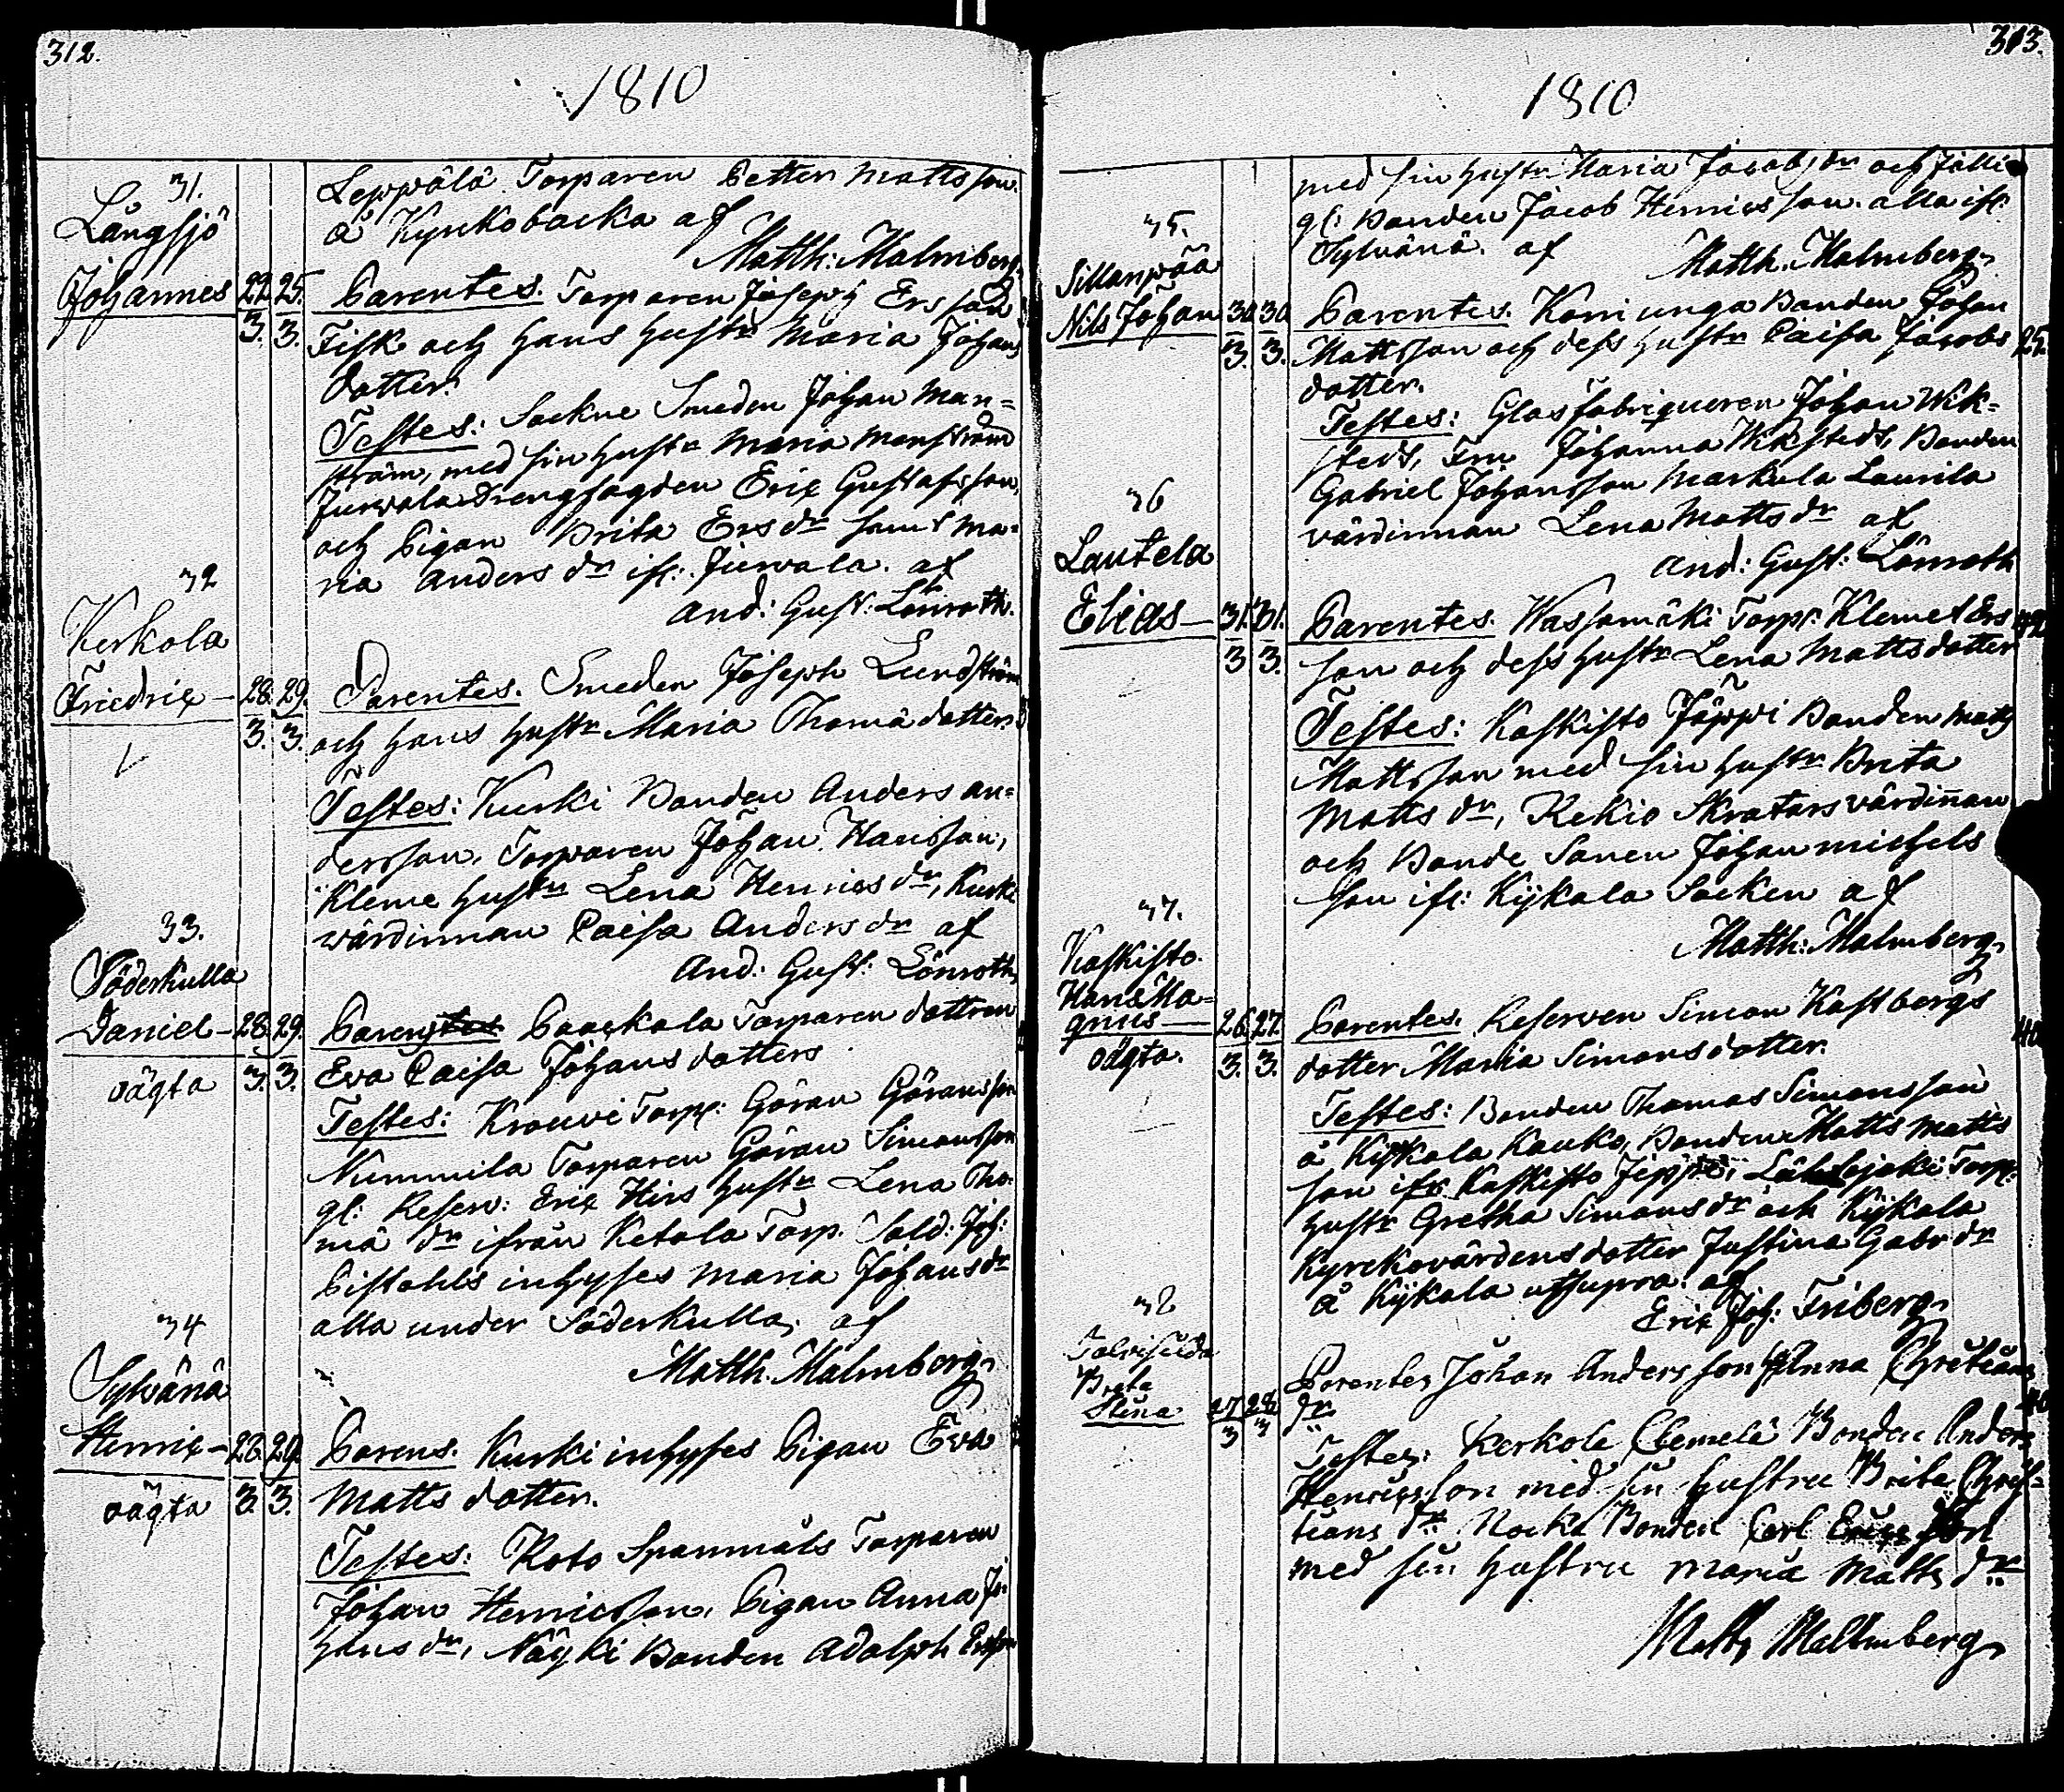 312.
1810
Leppälä Torparen Petter Mattsson
å Kyrkobacka af
Matth: Malmberg.
31.
Långsjö
Johannes 22/3. 25./3.
Parentes. Torparen Joseph Ersson
Fisk och hans hustr Maria Johans
dotter.
Testes: Sockne Smeden Johan Man=
ström, med sin hustr Maria Manström
Juvala Drengfogden Eric Gustafsson,
och Pigan Brita Ersdr samt Ma=
ria Anders dr ifr: Juvala. af
And: Gust: Lönroth.
32
Kerkola
Friedric — 28./3. 29./3.
Parentes. Smeden Joseph Lundström
och hans hustr Maria Thomä dotter.
Testes: Kurki Bonden Anders An=
dersson, Torparen Johan Hansson,
Kleme hustr Lena Henricsdr, Kurki
värdinnan Caisa Andersdr af
And: Gust: Lönroth,
33.
Söderkulla
Daniel — 28./3. 29./3.
oägta
Parens Paaskala Torparen dottren
Eva Caisa Johans dotters
Testes: Krouvi Torp: Göran Göransson
Nummila Torparen Göran Simonsson
gl: Reserv: Eric Hirs hustr Lena Tho-
mä dr ifrån Ketola Torp. Sold: Joh:
Pistahls inhyses Maria Johansdr
alla under Söderkulla, af
Matth. Malmberg,
34
Sylvänä
Henric — 28./3. 29./3.
oägta
Parens. Kurki inhyses Pigan Eva
Matts dotter.
Testes: Koto Spanmåls Torparen
Johan Henricsson, Pigan Anna Jo-
hans dr, Näyki Bonden Adolph Ersson
313.
1810
med sin hustr Maria Jacobs dr och
gl: Bonden Jacob Henricsson. alla ifr:
Sylvänä. af
Matth. Malmberg,
35.
Sillanpää
Nils Johan 30/3. 30/3.
Parentes. Koni unga Bonden Johan
Mattsson och dess hustr Caisa Jacobs 25.
dotter.
Testes: Glasfabriqueren Johan Wik=
stedt, Fru Johanna Wikstedt, Bonden
Gabriel Johansson Markula Laurila
värdinnan Lena Mattsdr af
And: Gust: Lönroth
36
Lautela
Elias — 31./3 31./3.
Parentes. Wassamäki Torp: Klemet Ers
son och dess hustr Lena Mattsdotter
Testes: Kaskisto Jäppi Bonden Matts
Mattsson med sin hustr Brita
Matts dr, Kekio Skratars värdinan
och Bonde Sonen Johan Michels
son ifr: Kijkala Socken af
Matth: Malmberg,
37.
Kaskisto.
Hans Ma=
gnus — 26./3. 27./3.
oägta.
Parentes. Reserven Simon Kastbergs
dotter Maria Simons dotter.
Testes: Bonden Thomas Simonsson
å Kijkala Kauko, Bonden Matts Matts
son ifr Kaskisto Jeppi, Torp:
hustr Gretha Simonsdr och Kijkala
Kyrckovärdens dotter Justina Gabr dr
å Kijkala utsupra. af
Eric Joh: Friberg,
38
Talvisilda
Brita
Stina 27/3 28/3
Parentes Johan Andersson Anna Christians
dr
Testes: Kerkola Clemelä Bonden Anders
Henricsson med sin hustru Brita Chris=
tians dr Nocka Bonden Carl Ericsson
med sin hustru Maria Matts dr
Matts Mallmberg,